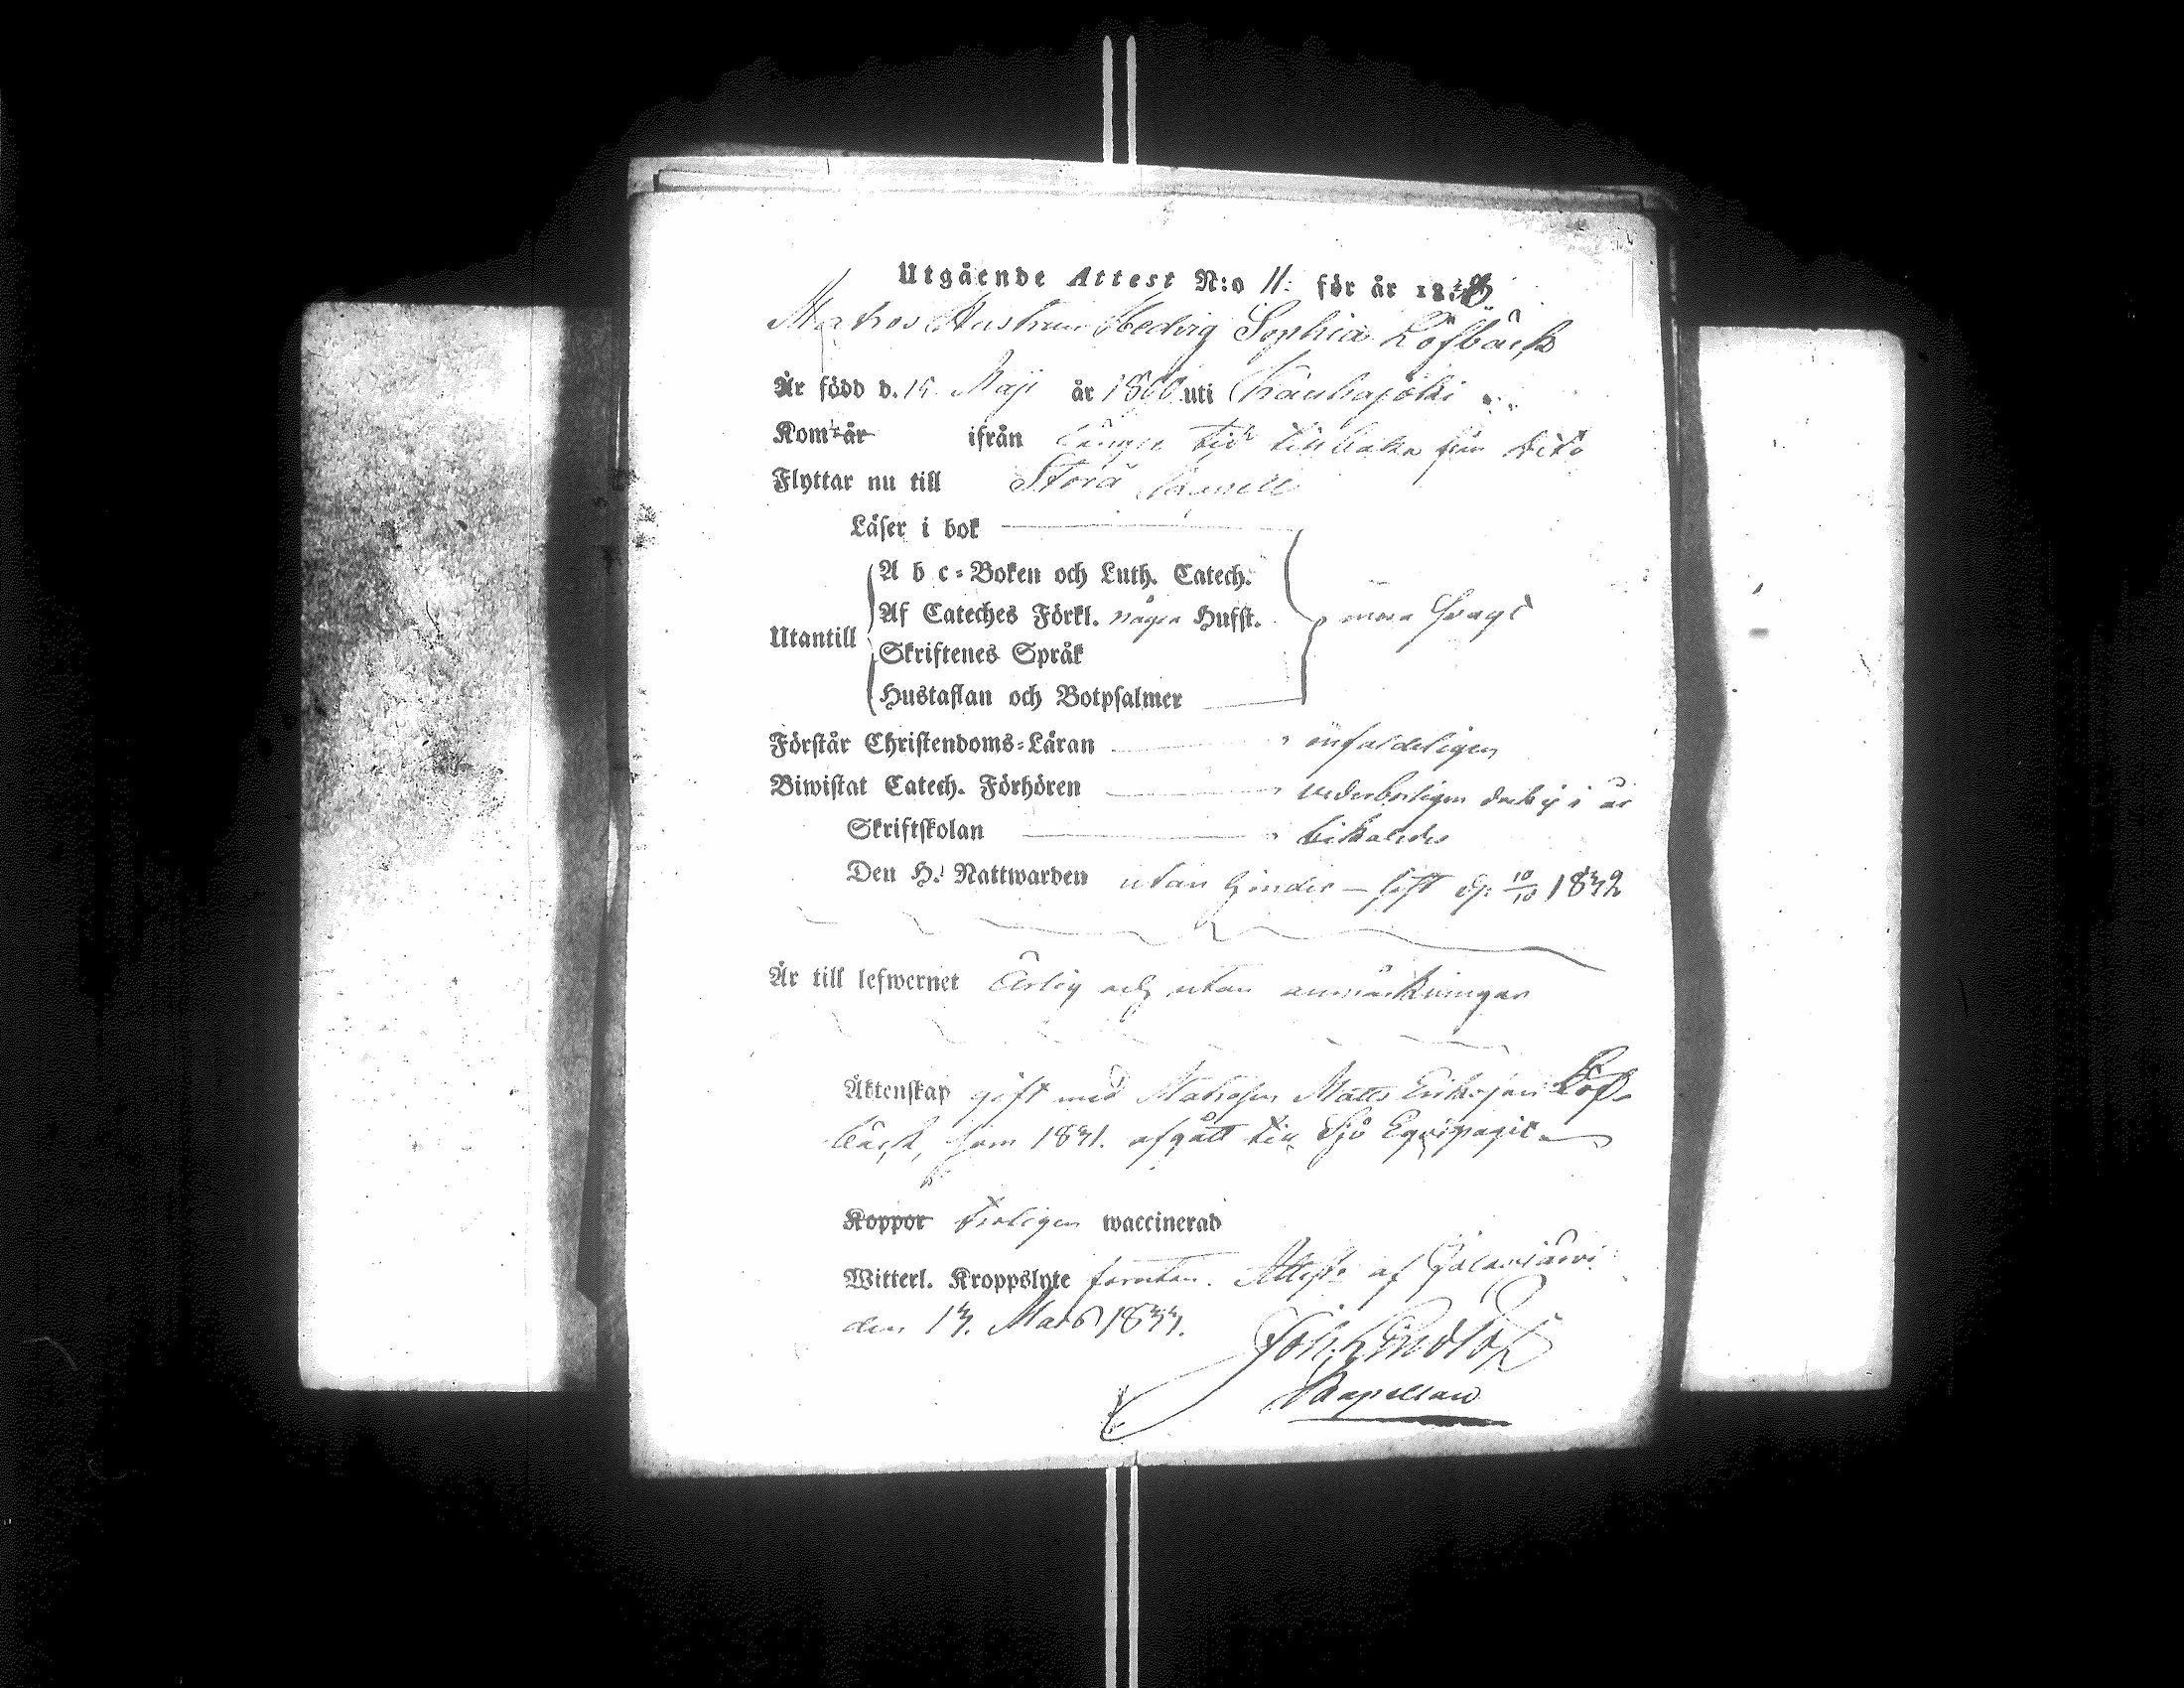 Utgående Attest N:o 11: för år 183
Matros Hustrun Hedvig Sophia Löfbäck
Är född d. 15 Maji år 1800 uti Kauhajoki
Kom år ifrån längre tid tillbaka från dito
Flyttar nu till Storå Capell
Läser i bok
A b c-Boken och Luth. Catech.
Af Cateches Förkl. några Hufst. svagt
Utantill
Skriftenes Språk
Hustaflan och Botpsalmer
Förstår Christendoms-Läran enfaldeligen
Biwistat Catech. Förhören vederborligen dock ej i år
Skriftskolan
Den H. Nattwarden utan hinder – sist d: 10/10 1832
Är till lefwernet Ärlig och utan anmärkningar
Äktenskap gift med Matrosen Matts Eriksson Löf-
bäck, som 1831. afgått till Sjö Equipaget
Koppor troligen waccinerad
Witterl. Kroppslyte förutan. Attest: af Jalasjärvi
den 13. Mars 1833.
Joh. Lindlöf
Kapellan